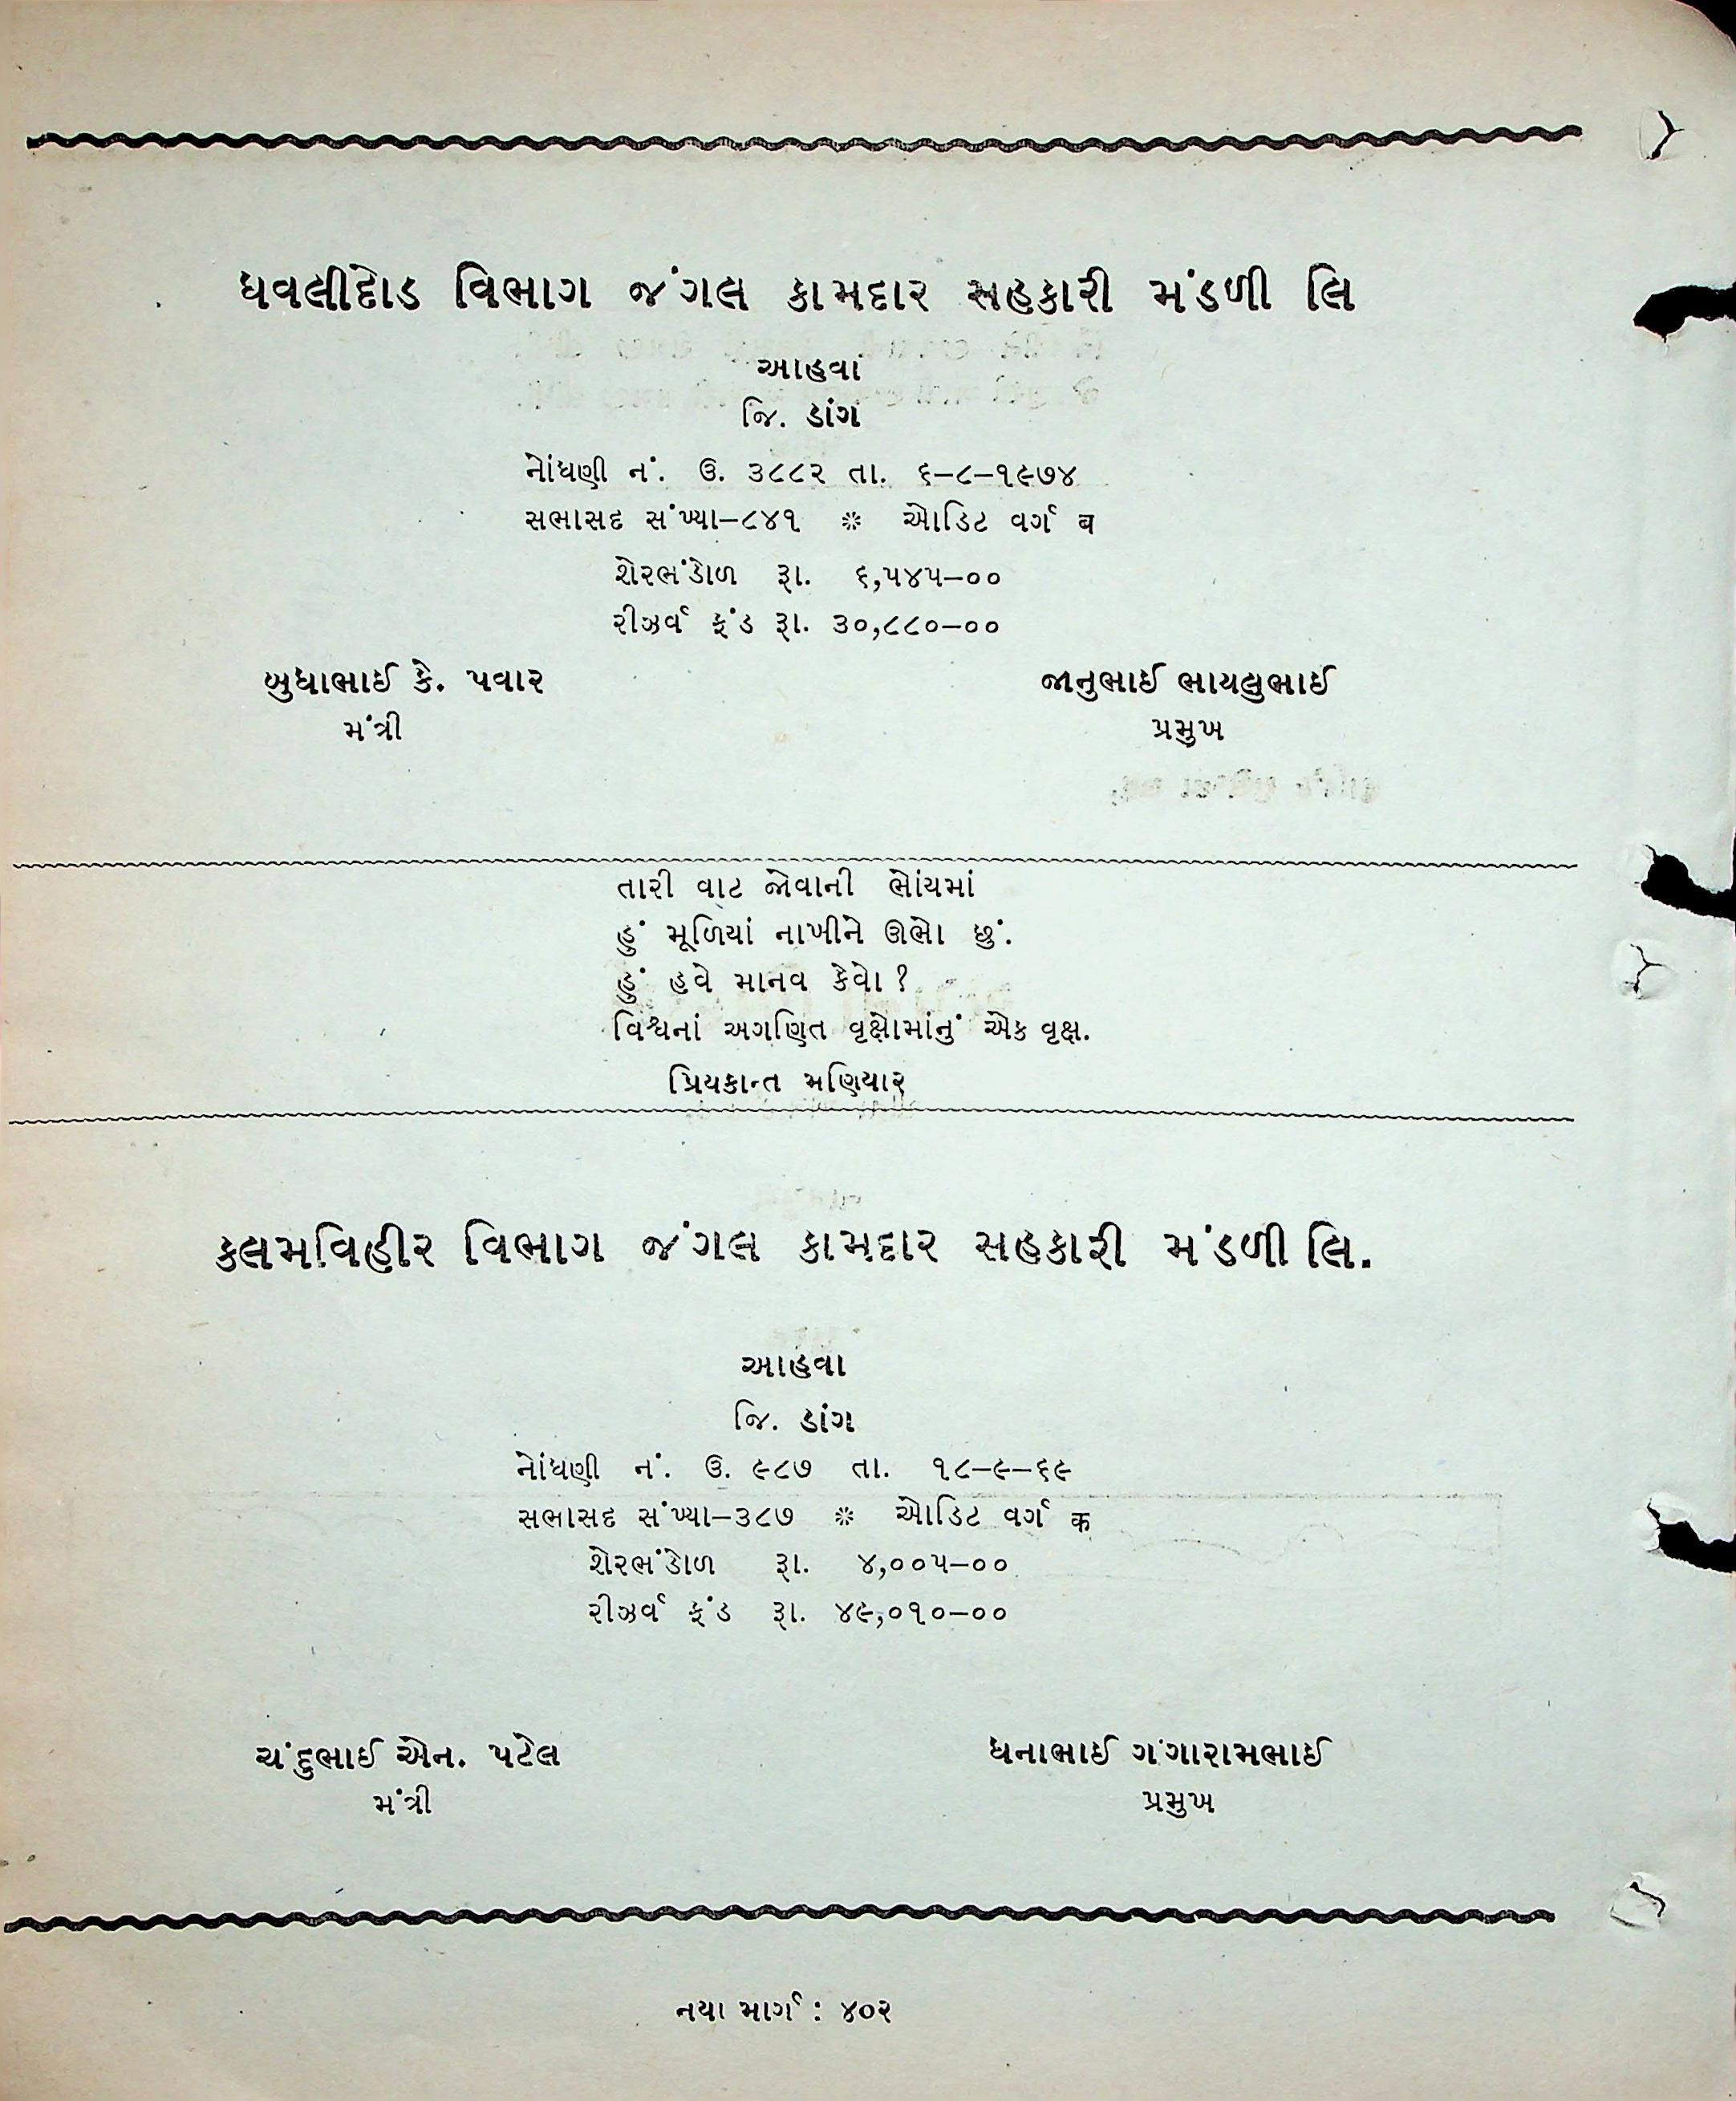 ધવલીદોડ વિભાગ જંગલ કામદાર સહકારી મંડળી લિ
આહવાં
જિ. ડાંગ
નોંધણી નં. ઉ. ૩૮૮૨ તા. ૬–૮–૧૯૭૪
સભાસદ સંખ્યા–૮૪૧ ❊ ઓડિટ વર્ગ ब
શેરભંડોળ રૂા. ૬,૫૪૫–૦૦
રીઝર્વ ફંડ રૂા. ૩૦,૮૮૦–૦૦
બુધાભાઈ કે. પવાર જાનુભાઈ ભાયલુભાઈ
મંત્રી પ્રમુખ
તારી વાટ જોવાની ભોંયમાં
હું મૂળિયાં નાખીને ઊભો છું.
હું હવે માનવ કેવો ?
વિશ્વનાં અગણિત વૃક્ષોમાંનું એક વૃક્ષ.
પ્રિયકાન્ત મણિયાર
કલમવિહીર વિભાગ જંગલ કામદાર સહકારી મંડળી લિ.
આહવા
જિ. ડાંગ
નોંધણી નં. ઉ. ૯૮૭ તા. ૧૮–૯–૬૯
સભાસદ સંખ્યા–૩૮૭ ❊ ઓડિટ વર્ગ क
શેરભંડોળ રૂા. ૪,૦૦૫–૦૦
રીઝર્વ ફંડ રૂા. ૪૯,૦૧૦–૦૦
ચંદુભાઈ એન. પટેલ ધનાભાઈ ગંગારામભાઈ
મંત્રી પ્રમુખ
નયા માર્ગ : ૪૦૨